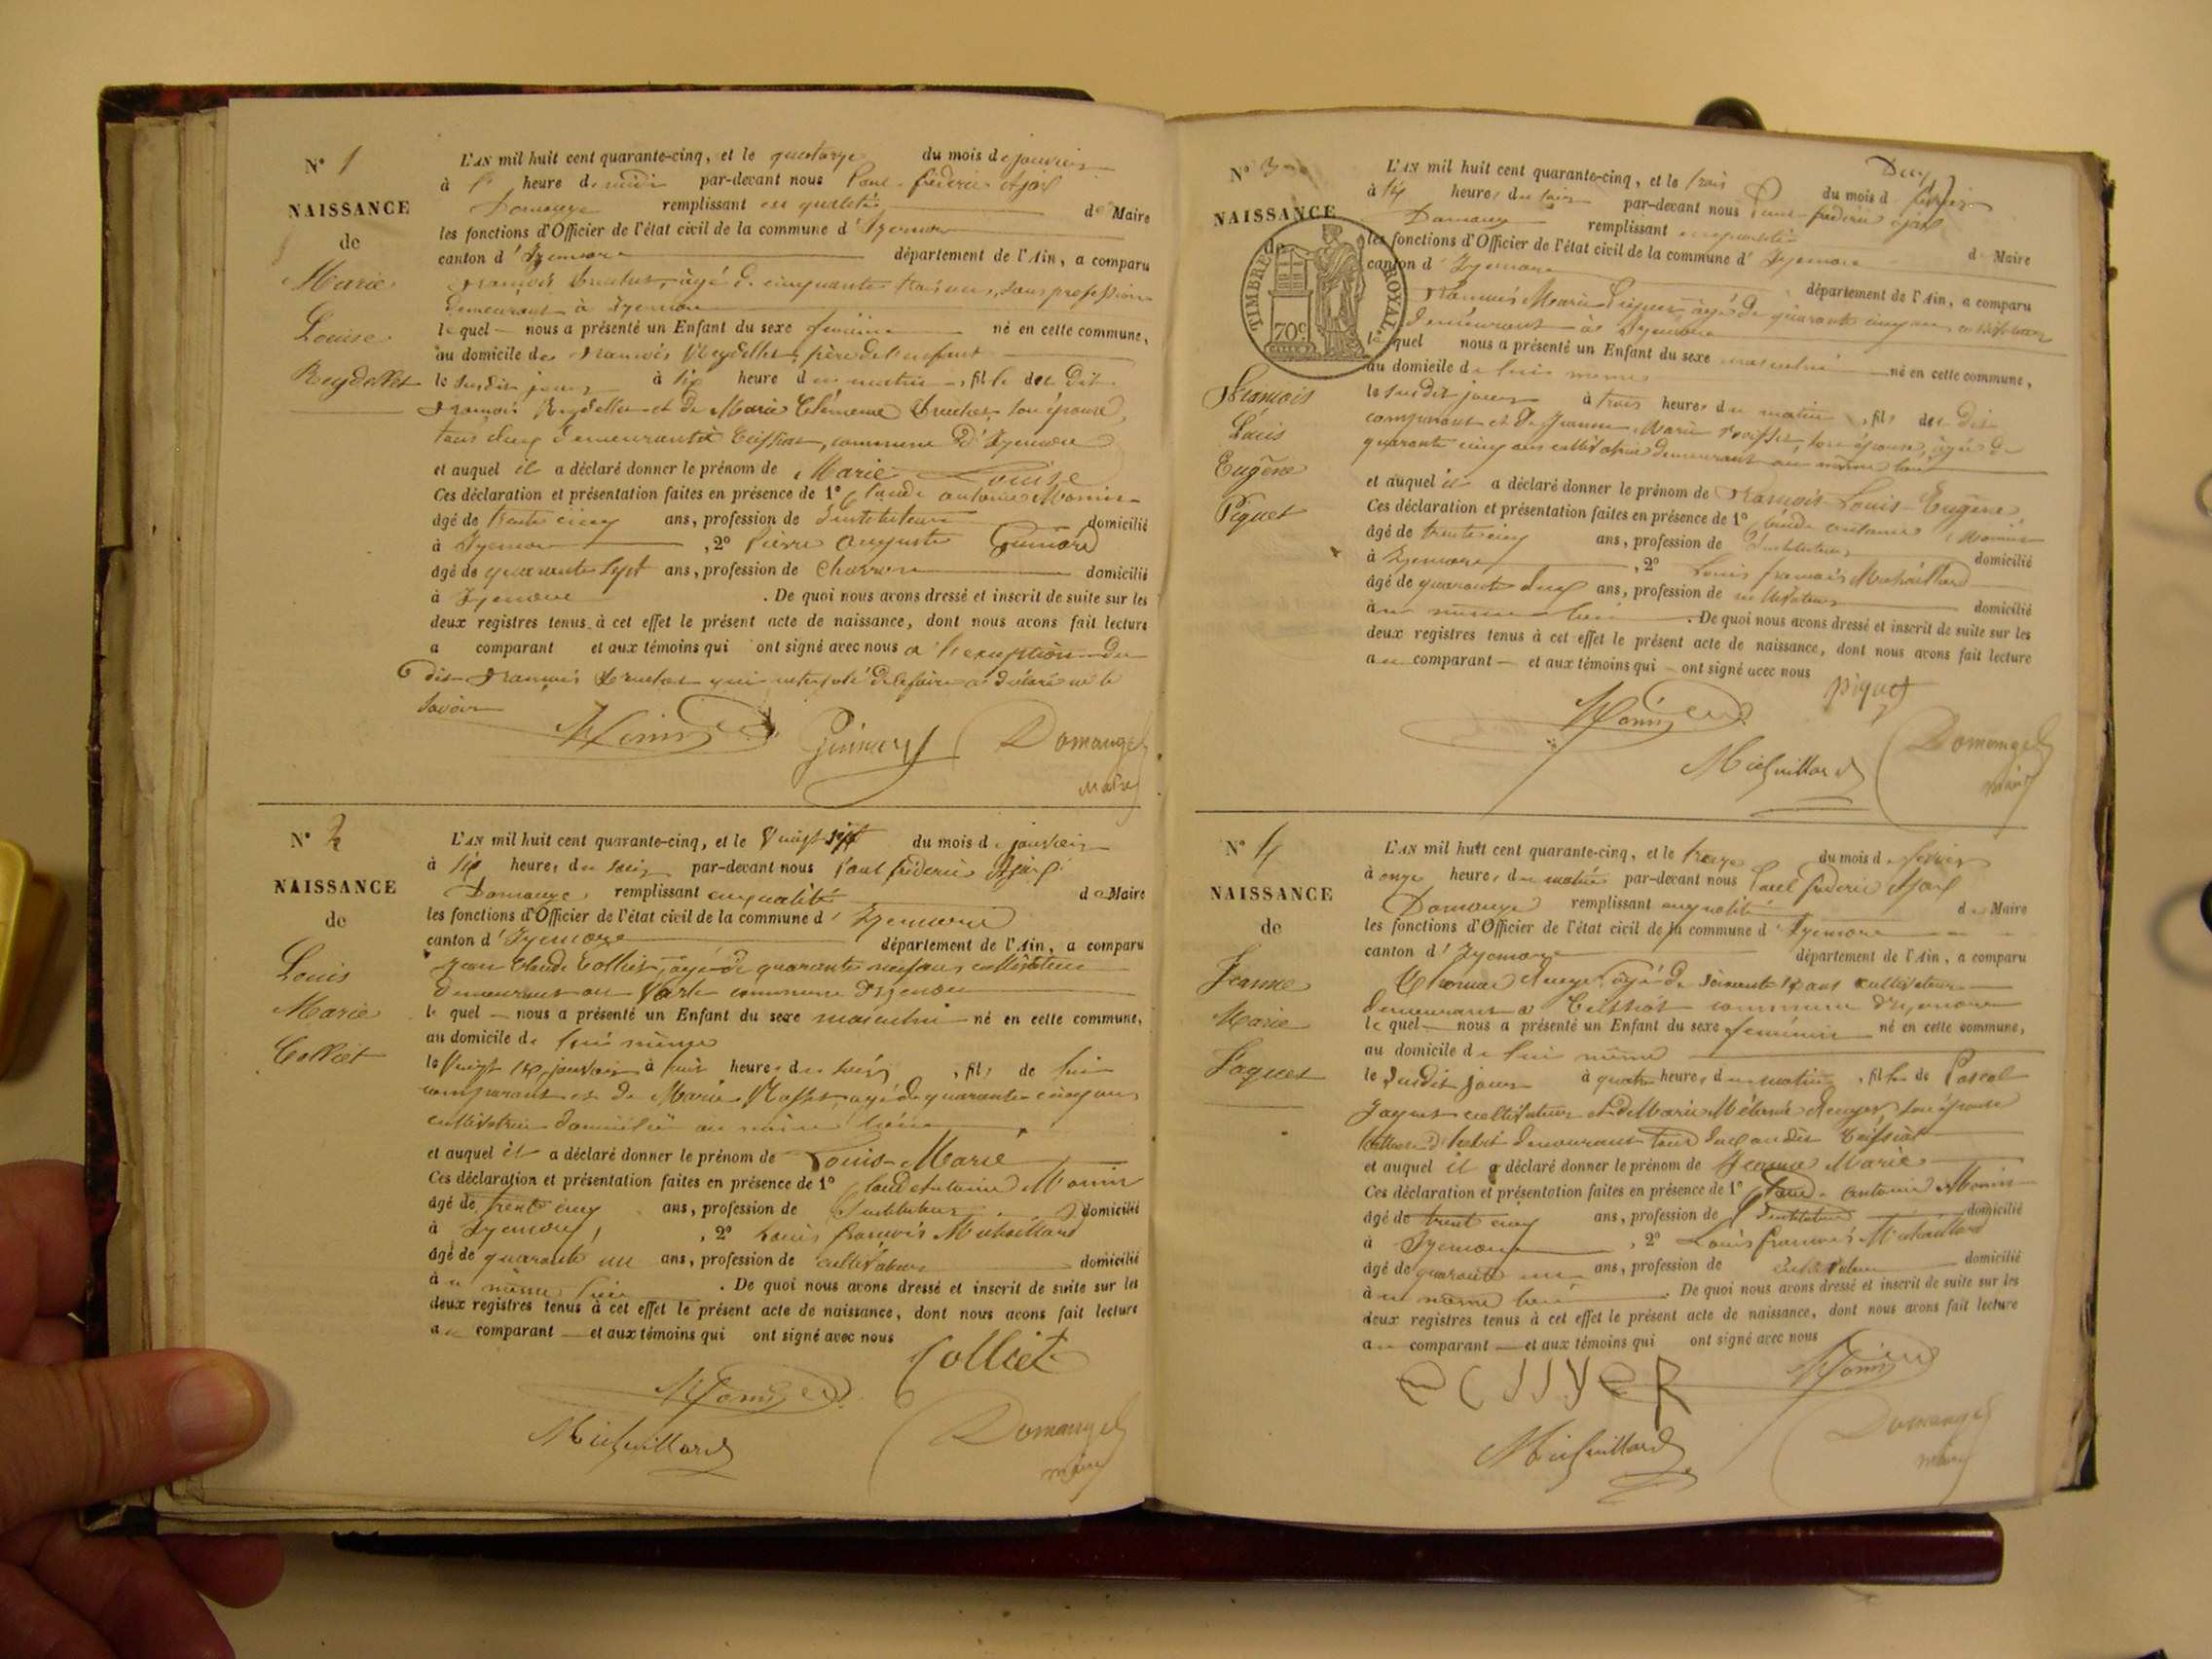 N° 1
NAISSANCE
de
Marie
Louise
Reydellet
L'AN mil huit cent quarante-cinq, et le quatorze du mois de janvier
à heure de midi par-devant nous Paul frédéric
Domange remplissant en qualité de Maire
les fonctions d'Officier de l'état civil de la commune d'Izernore
canton d'Izernore département de l'Ain, a comparu
françois âgé de cinquante trois ans, sans profession
demeurant à Izernore
lequel nous a présenté un Enfant du sexe féminin né en cette commune,
au domicile de françois Reydellet, père de l'enfant
le susdit jour à six heure du matin, fille de dit
françois Reydellet et de Marie Clémence son épouse,
tous deux demeurant à Ceissiat, commune d'Izernore
et auquel il a déclaré donner le prénom de Marie Louise
Ces déclaration et présentation faites en présence de 1° Claude antoine Monin
âgé de trente cinq ans, profession de Instituteur domicilié
à Izernore, 2° Pierre Auguste
âgé de quarante sept ans, profession de Charron domicilié
à Izernore. De quoi nous avons dressé et inscrit de suite sur les
deux registres tenus à cet effet le présent acte de naissance, dont nous avons fait lecture
a comparant et aux témoins qui ont signé avec nous à l'exception du
dit françois qui interpelé de le faire a déclaré ne le
savoir
Monin Domange
maire
N° 2
NAISSANCE
de
Louis
Marie
Colliet
L'AN mil huit cent quarante-cinq, et le Vingt sept du mois de janvier
à six heures du soir par-devant nous Paul frédéric
Domange remplissant en qualité de Maire
les fonctions d'Officier de l'état civil de la commune d'Izernore
canton d'Izernore département de l'Ain, a comparu
Jean Claude Colliet, âgé de quarante neuf ans cultivateur
demeurant au commune d'Izernore
lequel nous a présenté un Enfant du sexe masculin né en cette commune,
au domicile de lui même
le Vingt janvier à heures du soir, fils de lui
comparant et de Marie âgée de quarante cinq ans
cultivatrice domiciliée au même lieu
et auquel il a déclaré donner le prénom de Louis-Marie
Ces déclaration et présentation faites en présence de 1° Claude Antoine Monin
âgé de trente cinq ans, profession de Instituteur domicilié
à Izernore, 2° Louis françois Michaillard
âgé de quarante un ans, profession de cultivateur domicilié
à même lieu. De quoi nous avons dressé et inscrit de suite sur les
deux registres tenus à cet effet le présent acte de naissance, dont nous avons fait lecture
au comparant et aux témoins qui ont signé avec nous
Colliet
Monin
Michaillard Domange
maire
N° 3
NAISSANCE
de
TIMBRE ROYAL
70c
François
Louis
Eugène
Piquet
L'AN mil huit cent quarante-cinq, et le trois du mois de février
à heures du soir par-devant nous Paul frédéric
Domange remplissant en qualité de Maire
les fonctions d'Officier de l'état civil de la commune d'Izernore
canton d'Izernore département de l'Ain, a comparu
françois Marie Piquet, âgé de quarante cinq ans cultivateur
demeurant à Izernore
lequel nous a présenté un Enfant du sexe masculin né en cette commune,
au domicile de lui même
le susdit jour à trois heures du matin, fils de dit
comparant et de Jeanne Marie son épouse, âgée de
quarante cinq ans cultivatrice demeurant au même lieu
et auquel il a déclaré donner le prénom de François Louis Eugène
Ces déclaration et présentation faites en présence de 1° Claude antoine Monin
âgé de trente cinq ans, profession de Instituteur domicilié
à Izernore, 2° Louis françois Michaillard
âgé de quarante deux ans, profession de cultivateur domicilié
à même lieu. De quoi nous avons dressé et inscrit de suite sur les
deux registres tenus à cet effet le présent acte de naissance, dont nous avons fait lecture
au comparant et aux témoins qui ont signé avec nous
piquet
Monin
Michaillard Domange
maire
N° 4
NAISSANCE
de
Jeanne
Marie
Jaquet
L'AN mil huit cent quarante-cinq, et le treize du mois de février
à onze heures du matin par-devant nous Paul frédéric
Domange remplissant en qualité de Maire
les fonctions d'Officier de l'état civil de la commune d'Izernore
canton d'Izernore département de l'Ain, a comparu
âgé de soixante ans cultivateur
demeurant à Ceissiat commune d'Izernore
lequel nous a présenté un Enfant du sexe féminin né en cette commune,
au domicile de lui même
le susdit jour à quatre heures du matin, fille de Pascal
Jaquet cultivateur et de Marie Mélanie son épouse
demeurant tous deux audit Ceissiat
et auquel il a déclaré donner le prénom de Jeanne Marie
Ces déclaration et présentation faites en présence de 1° Claude antoine Monin
âgé de trente cinq ans, profession de Instituteur domicilié
à Izernore, 2° Louis françois Michaillard
âgé de quarante un ans, profession de cultivateur domicilié
à même lieu. De quoi nous avons dressé et inscrit de suite sur les
deux registres tenus à cet effet le présent acte de naissance, dont nous avons fait lecture
au comparant et aux témoins qui ont signé avec nous
Monin
Michaillard Domange
maire